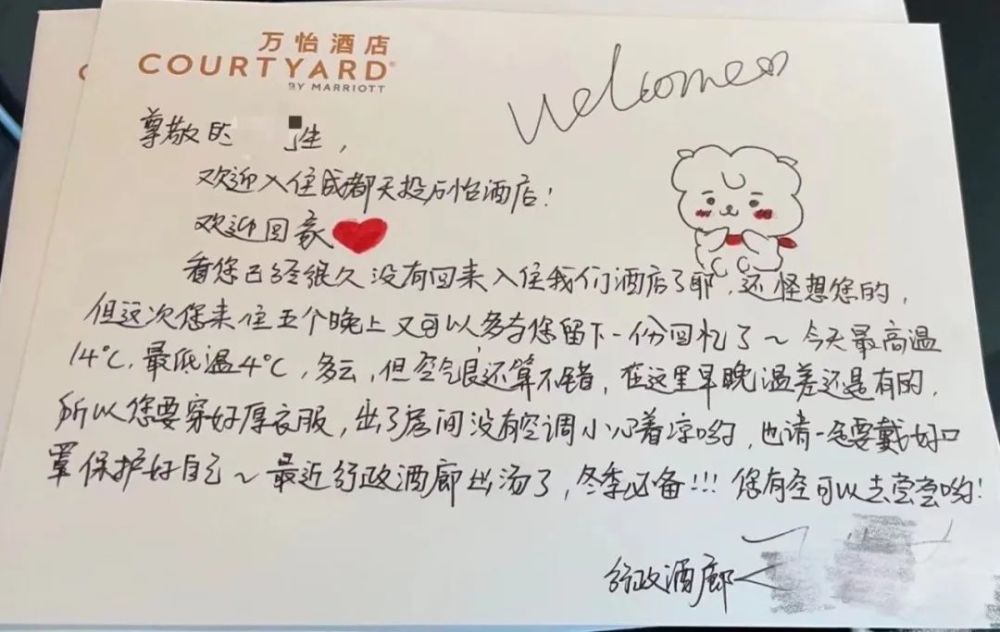 万怡酒店
COURTYARD®
BY MARRIOTT
Welcome
尊敬的 生，
欢迎入住成都天投万怡酒店！
欢迎回家
看您已经很久没有回来入住我们酒店了耶，还怪想您的，
但这次您来住五个晚上又可以多与您留下一份回忆了～今天最高温
14℃，最低温4℃，多云，但空气良还算不错，在这里早晚温差还是有的，
所以您要穿好厚衣服，出了房间没有空调小心着凉哟，也请一定要戴好口
罩保护好自己～最近行政酒廊出汤了，冬季必备!!! 您有空可以去尝尝哟！
行政酒廊